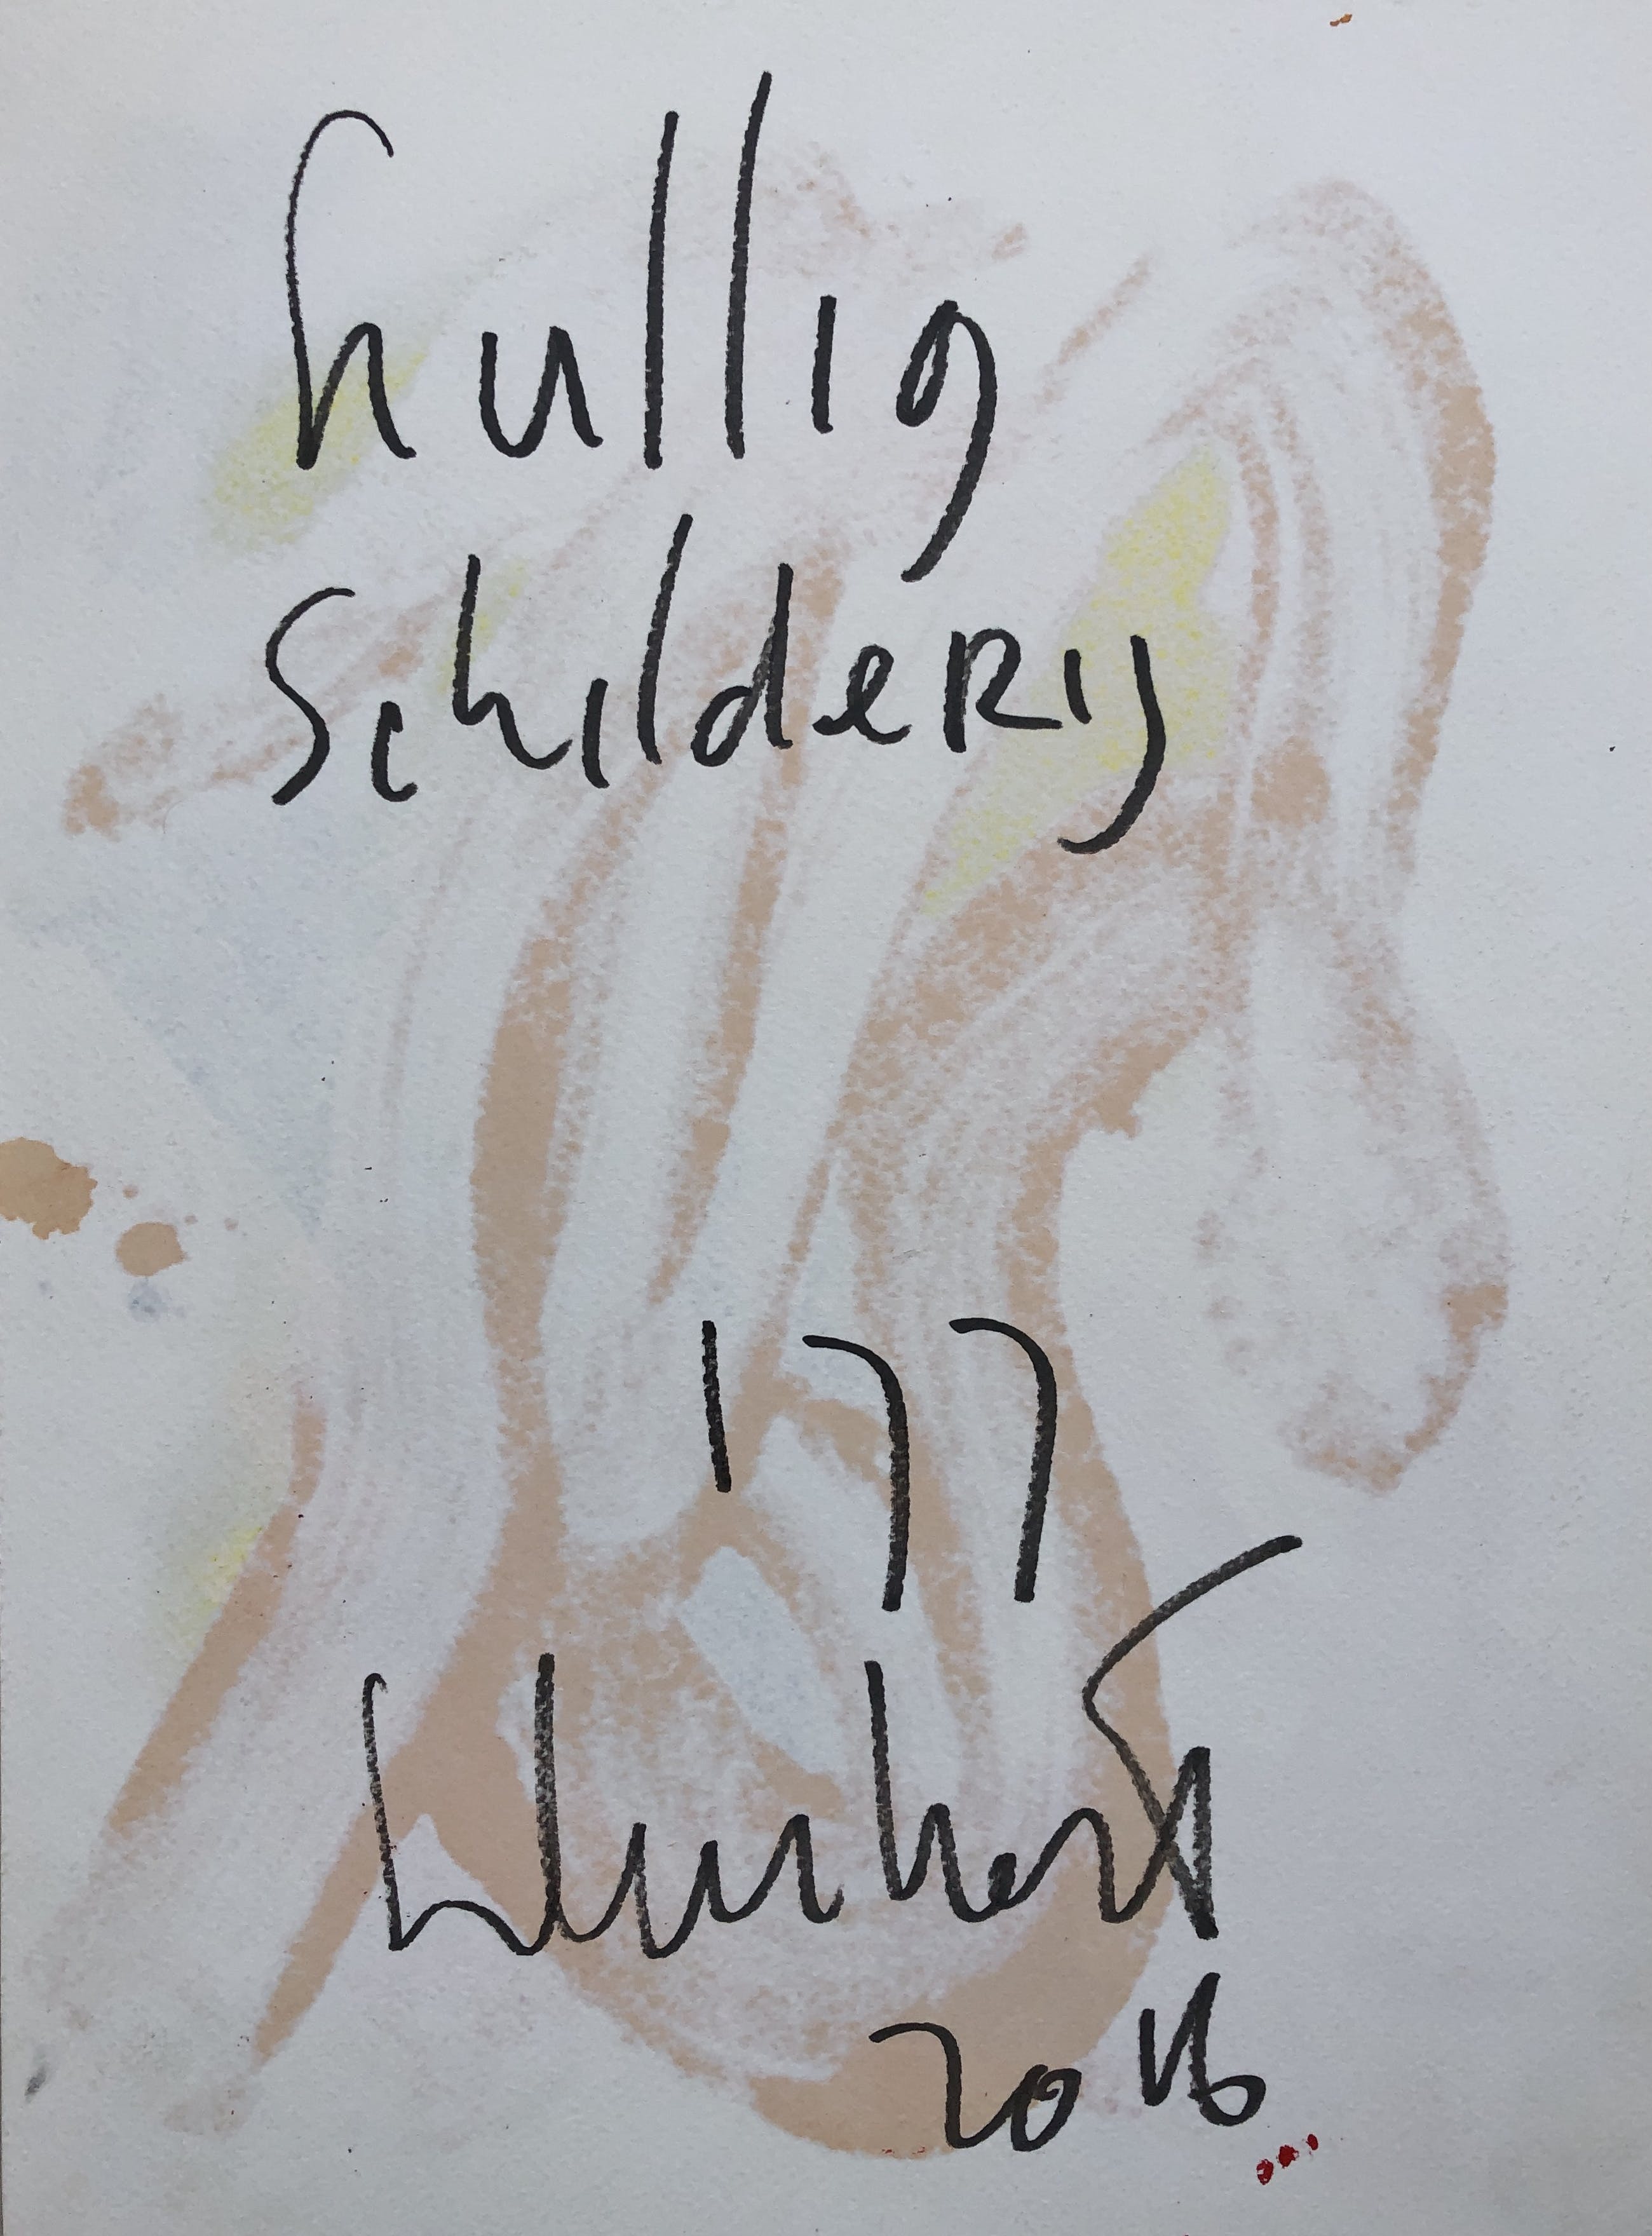 hullig
schildeRij
'77
2016